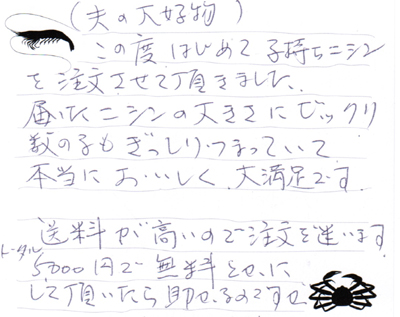 (夫の大好物)
この度はじめて子持ちニシン
を注文させて頂きました。
届いたニシンの大きさにビックリ
数の子もぎっしりつまっていて
本当においしく、大満足です
送料が高いので注文を迷います
トータル5000円で無料とかに
して頂いたら助かるのですが